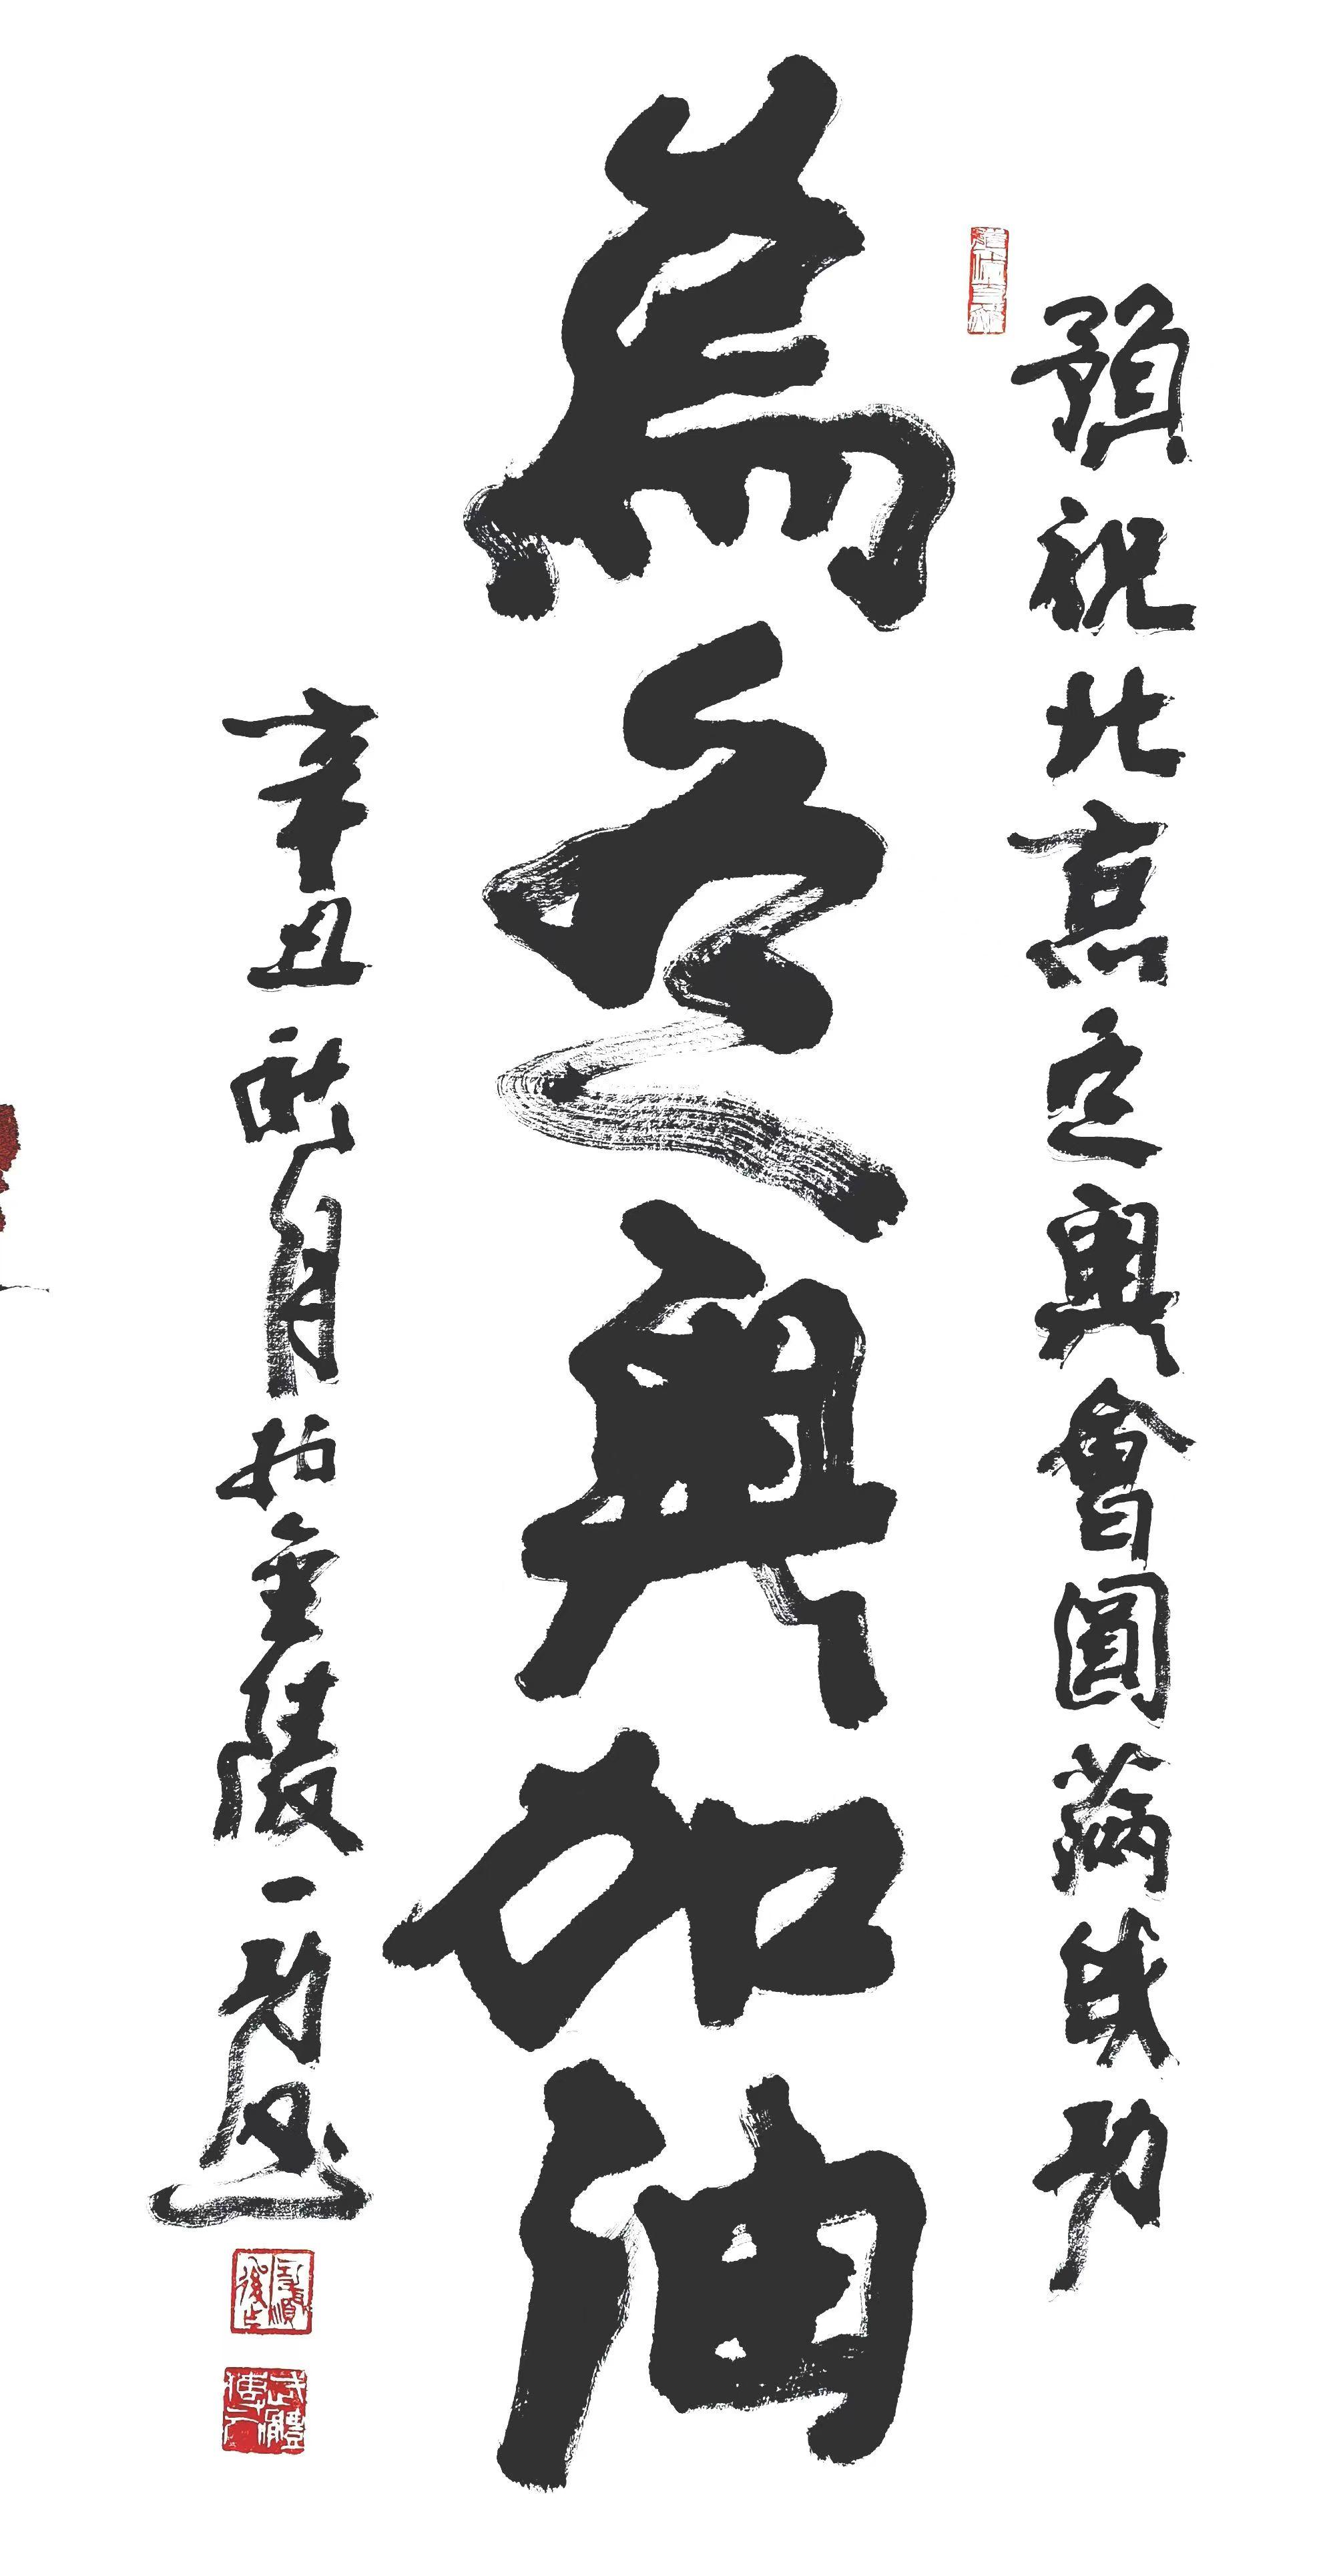 預祝北京冬奧會圓滿成功
為冬奧加油
辛丑月於金陵一